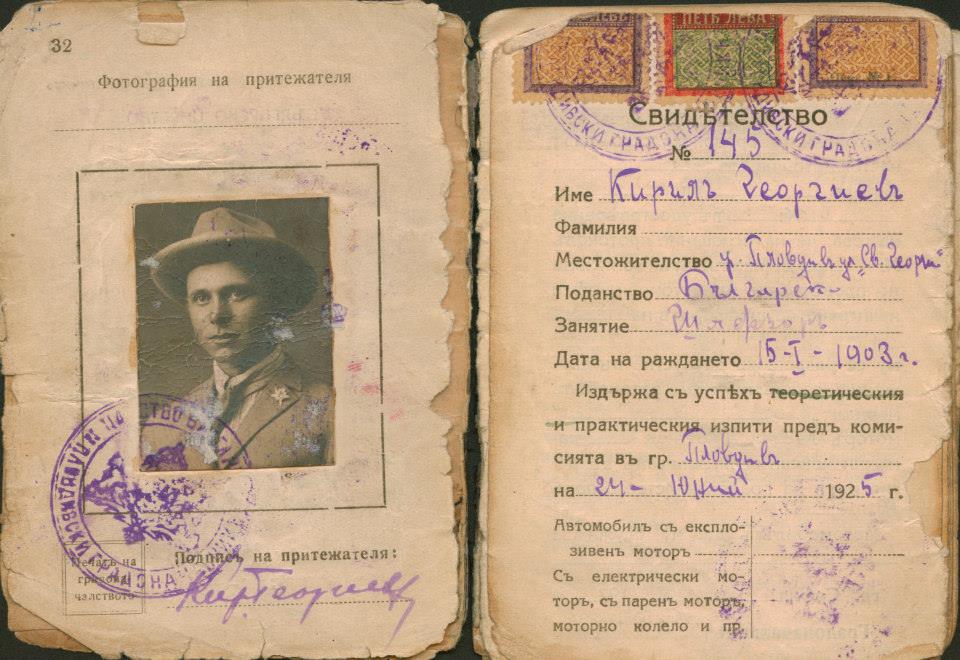 32
Фотография на притежателя
Подпись на притежателя:
Кир Георгиев
Печать на
градона-
чалството
ПЕТЬ ЛЕВА
Свидѣтелство
№ 145
Име Кирилъ Георгиевъ
Фамилия
Местожителство гр. Пловдивъ ул. „Св. Георги"
Поданство Българско
Занятие Шофьоръ
Дата на раждането 15-I-1903 г.
Издържа съ успѣхъ теоретическия
и практическия изпити предъ коми-
сията въ гр. Пловдивъ
на 24- Юний 1925 г.
Автомобилъ съ експло-
зивенъ моторъ
Съ електрически мо-
торъ, съ паренъ моторъ,
моторно колело и пр.